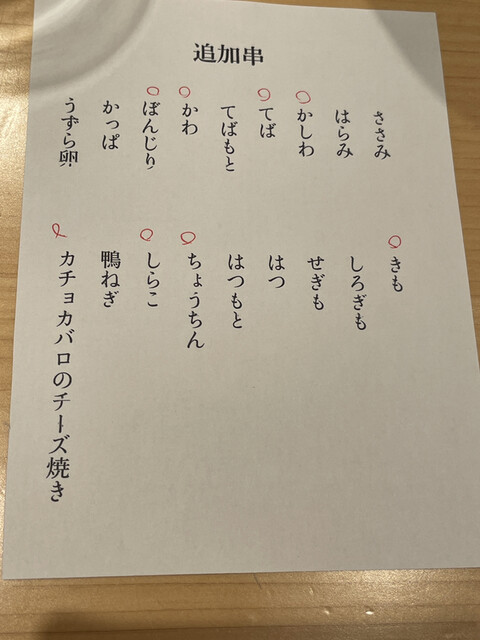 追加串
ささみ
はらみ
かしわ
てば
てばもと
かわ
ぼんじり
かっぱ
うずら卵
きも
しろぎも
せぎも
はつ
はつもと
ちょうちん
しらこ
鴨ねぎ
カチョカバロのチーズ焼き